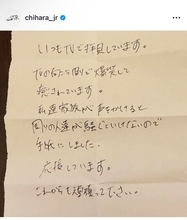 chihara_jr
いつもTVで拝見しています。
TVの向こう側で爆笑して
癒されています。
私達家族が声をかけると
周りの人達が騒ぐといけないので
手紙にしました。
応援しています。
これからも頑張って下さい。